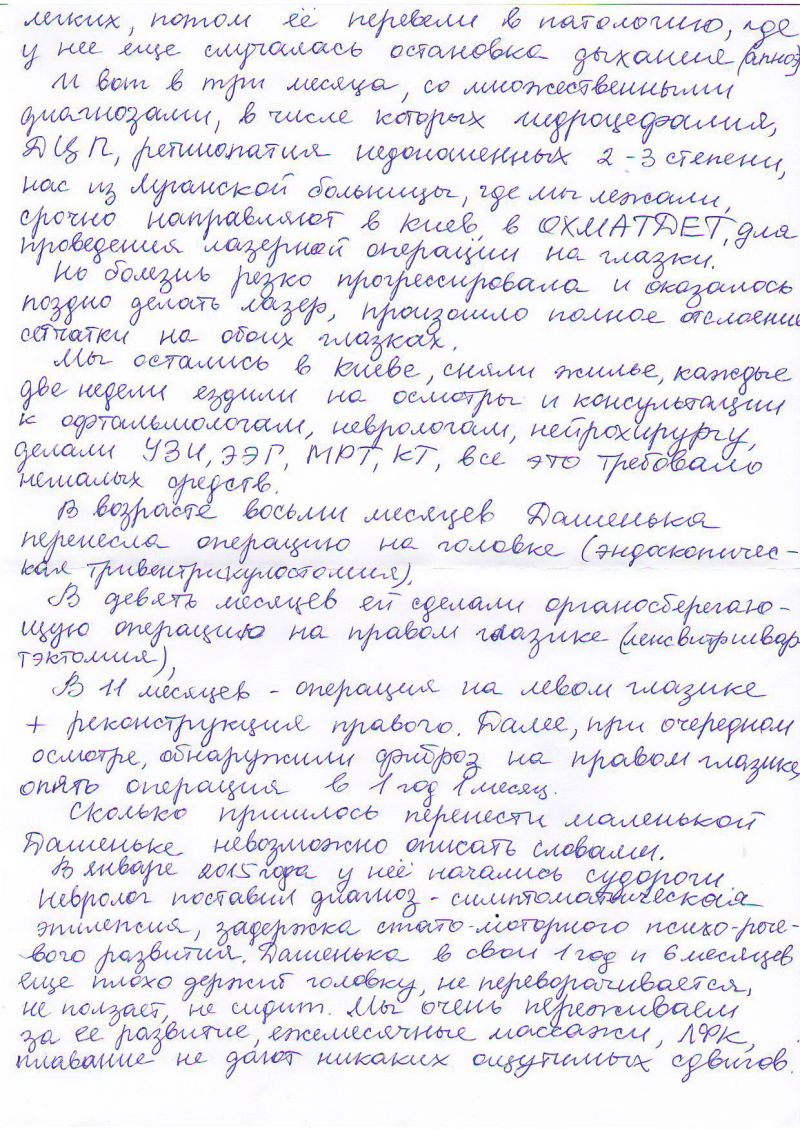 легких, потом её перевели в патологию, где
у нее еще случалась остановка дыхания (апноэ)
И вот в три месяца, со множественными
диагнозами, в числе которых гидроцефалия,
ДЦП, ретинопатия недоношенных 2-3 степени,
нас из Луганской больницы, где мы лежали,
срочно направляют в Киев, в ОХМАТДЕТ, для
проведения лазерной операции на глазки.
Но болезнь резко прогрессировала и оказалось
поздно делать лазер, произошло полное отслоение
сетчатки на обоих глазках.
Мы остались в Киеве, сняли жилье, каждые
две недели ездили на осмотры и консультации
к офтальмологам, неврологам, нейрохирургу,
делали УЗИ, ЭЭГ, МРТ, КТ, все это требовало
немалых средств.
В возрасте восьми месяцев Дашенька
перенесла операцию на головке (эндоскопичес-
кая тривентрикулостомия),
В девять месяцев ей сделали органосберегаю-
щую операцию на правом глазике (ленсвитришвар-
тэктомия),
В 11 месяцев - операция на левом глазике
+ реконструкция правого. Далее, при очередном
осмотре, обнаружили фиброз на правом глазике,
опять операция в 1 год 1 месяц.
Сколько пришлось перенести маленькой
Дашеньке невозможно описать словами.
В январе 2015 года у неё начались судороги
Невролог поставил диагноз - симптоматическая
эпилепсия, задержка стато-моторного психо-рече-
вого развития. Дашенька в свои 1 год и 6 месяцев
еще плохо держит головку, не переворачивается,
не ползает, не сидит. Мы очень переживаем
за ее развитие, ежемесячные массажи, ЛФК,
плавание не дают никаких ощутимых сдвигов.